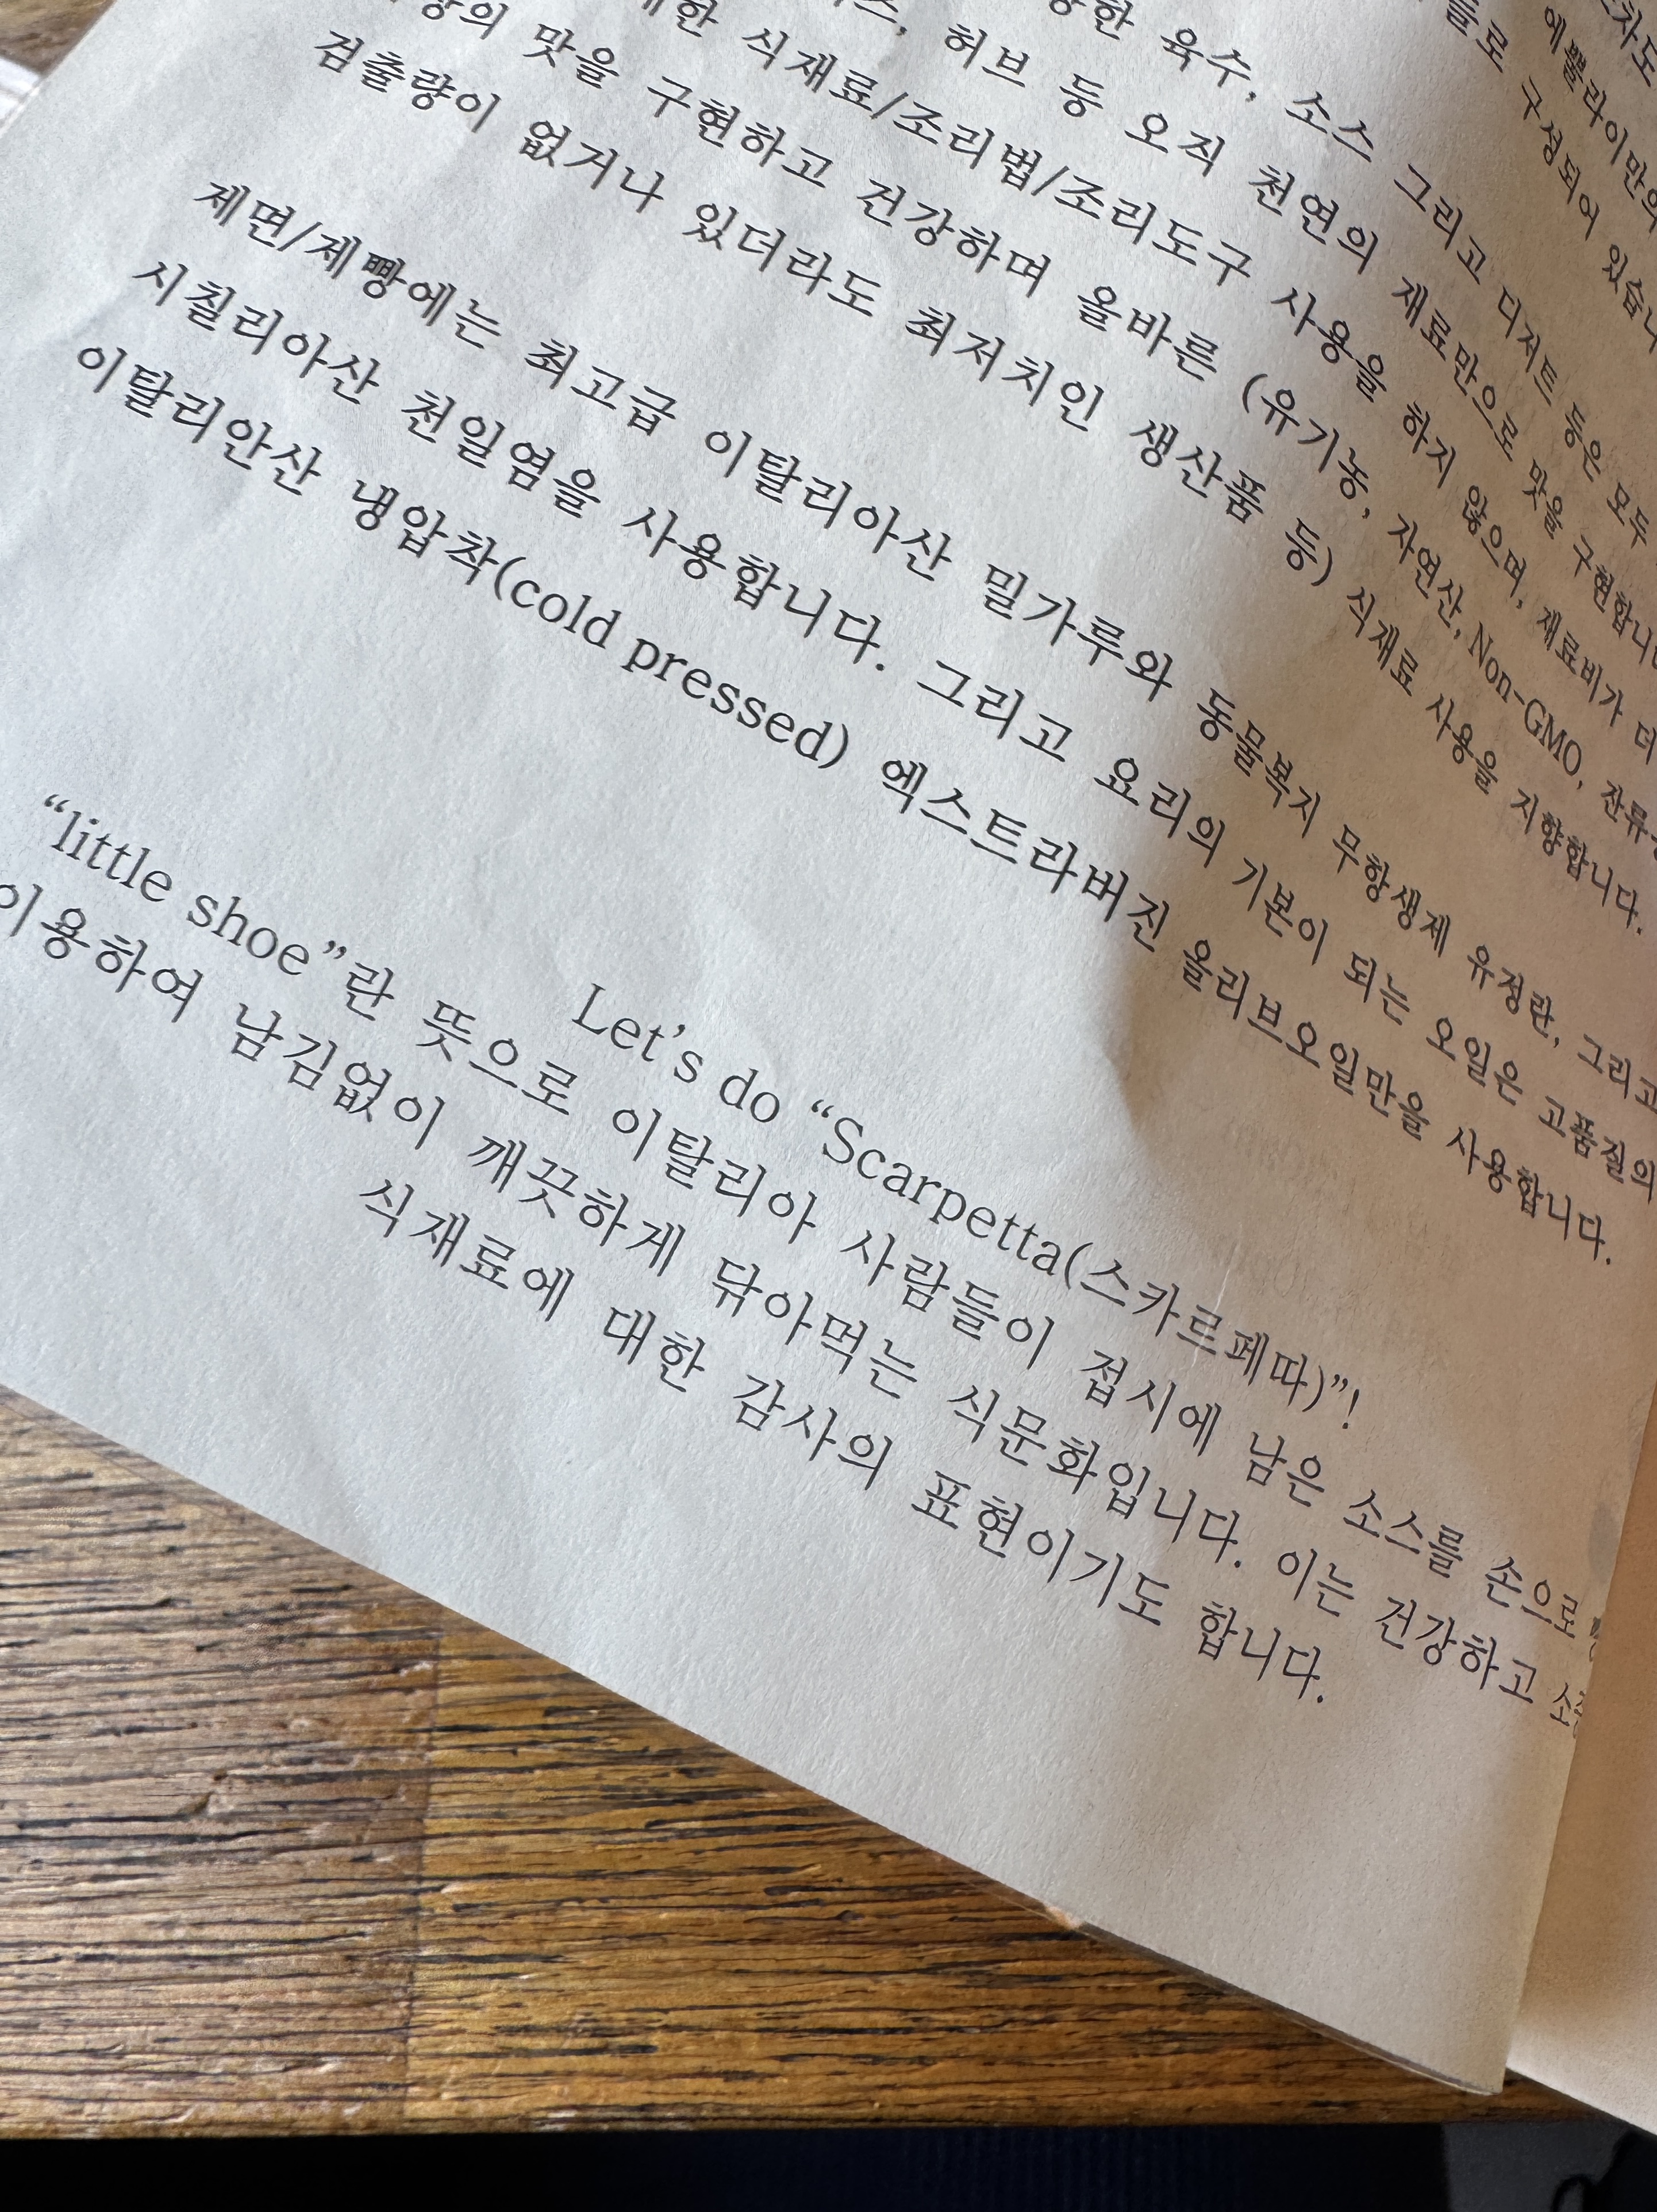 구성되어 있습니
육수, 소스 그리고 디저트 등은 모두
허브 등 오직 천연의 재료만으로 맛을 구현합니
식재료/조리법/조리도구 사용을 하지 않으며, 재료비가 더
맛을 구현하고 건강하며 올바른 (유기농, 자연산, Non-GMO, 잔류
검출량이 없거나 있더라도 최저치인 생산품 등) 식재료 사용을 지향합니다.
제면/제빵에는 최고급 이탈리아산 밀가루와 동물복지 무항생제 유정란, 그리고
시칠리아산 천일염을 사용합니다. 그리고 요리의 기본이 되는 오일은 고품질의
이탈리안산 냉압착(cold pressed) 엑스트라버진 올리브오일만을 사용합니다.
Let’s do “Scarpetta(스카르페따)”!
“little shoe”란 뜻으로 이탈리아 사람들이 접시에 남은 소스를 손으로
이용하여 남김없이 깨끗하게 닦아먹는 식문화입니다. 이는 건강하고
식재료에 대한 감사의 표현이기도 합니다.